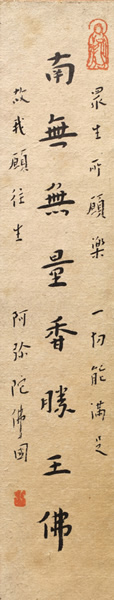 眾生所願樂 一切能滿足
南無無量香勝王佛
故我願往生 阿弥陀佛國